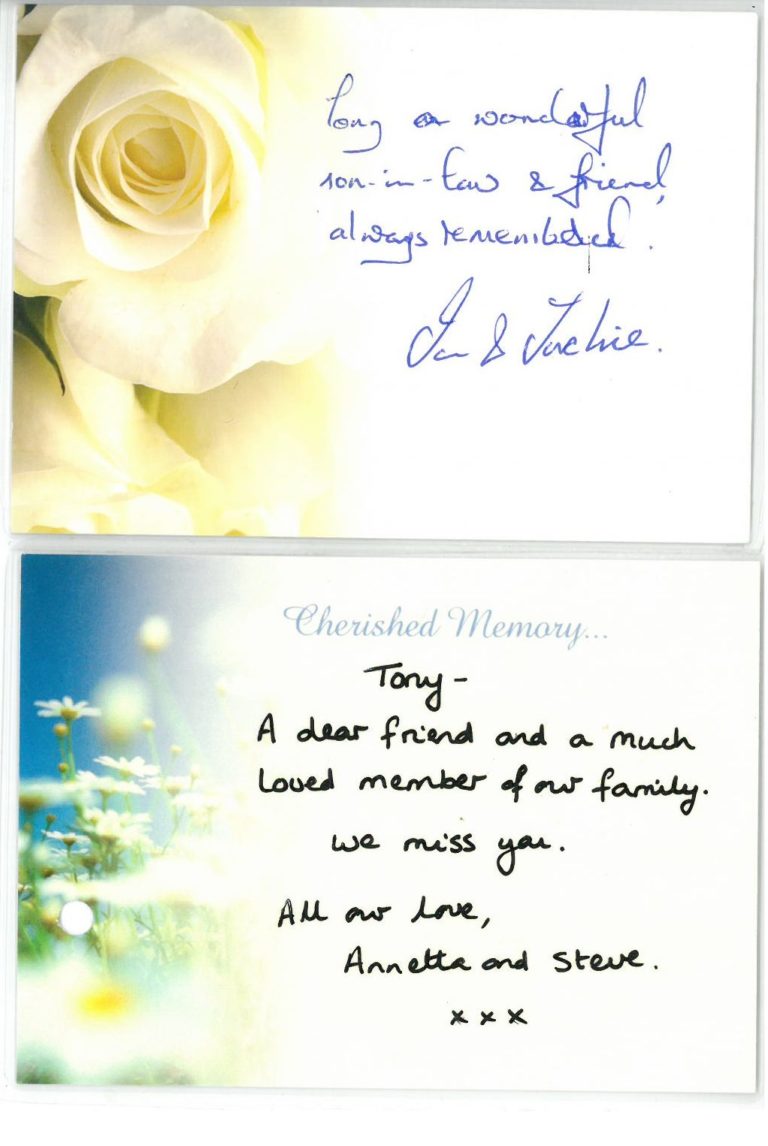 Tony a wonderful
son-in-law & friend,
always remembered.
Ian & Jackie.
Cherished Memory...
Tony -
A dear friend and a much
loved member of our family.
We miss you.
All our love,
Annetta and Steve.
x x x